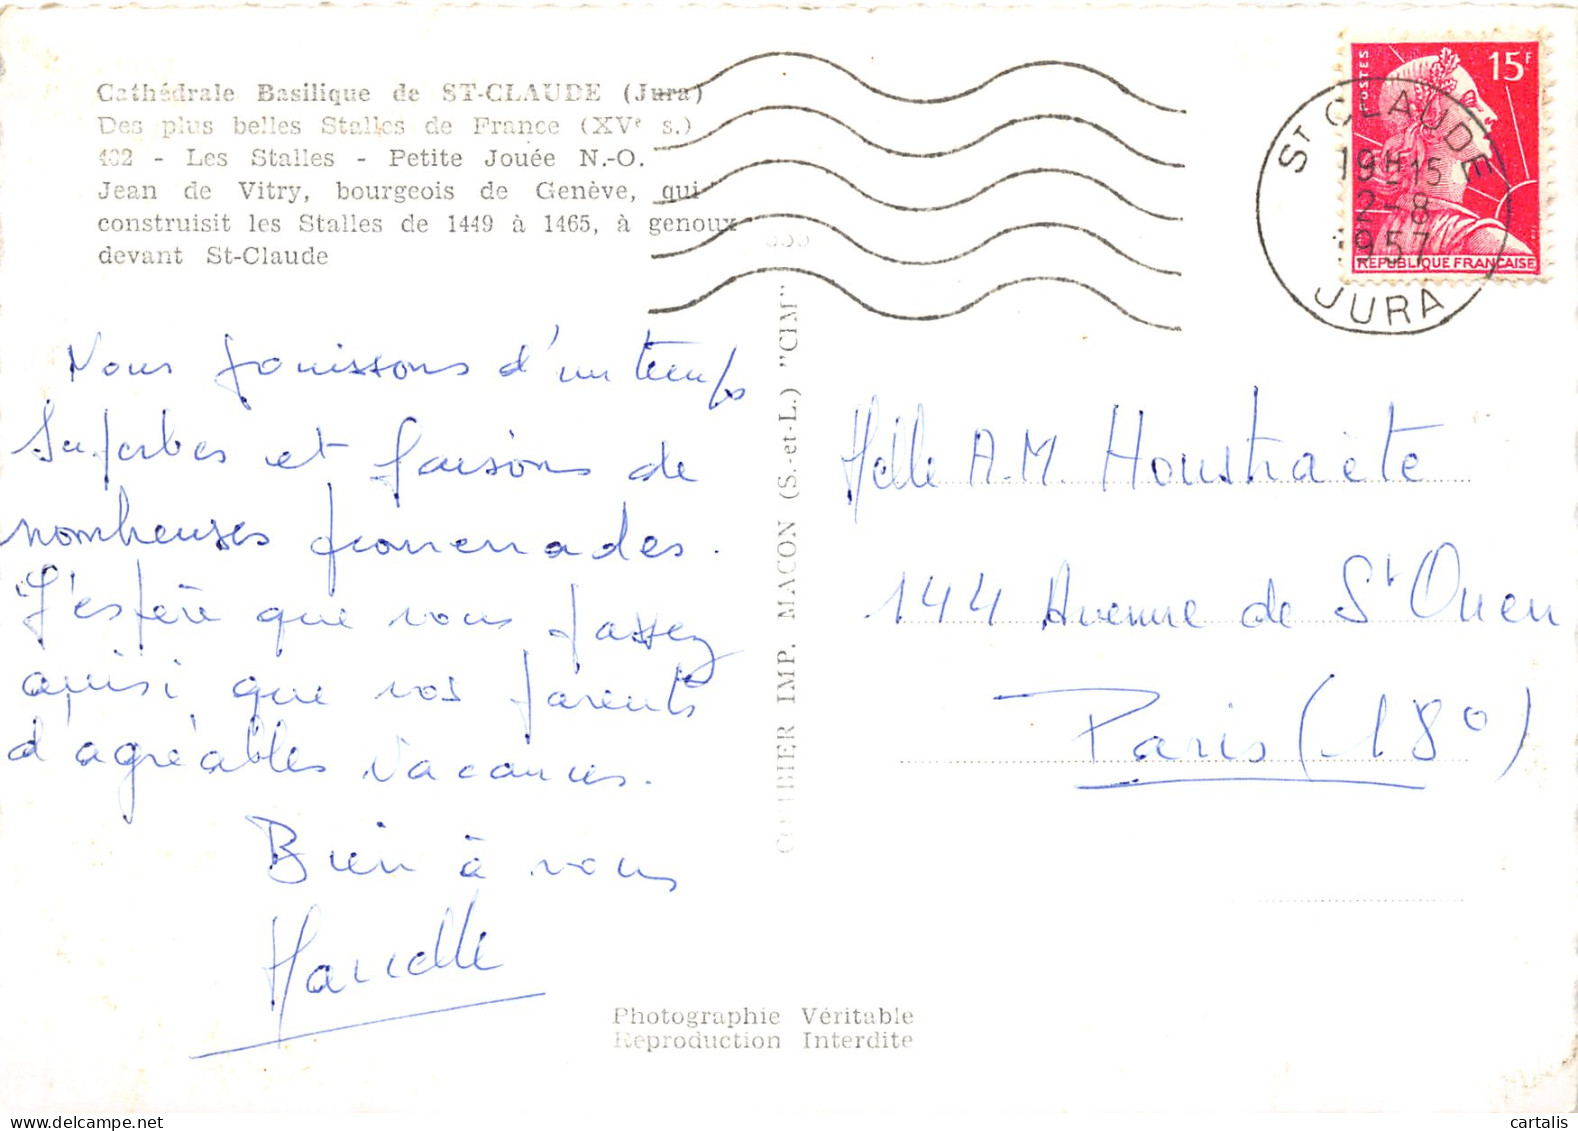 Cathédrale Basilique de ST-CLAUDE (Jura)
Des plus belles Stalles de France (XVe s.)
402 - Les Stalles - Petite Jouée N.-O.
Jean de Vitry, bourgeois de Genève, qui
construisit les Stalles de 1449 à 1465, à genoux
devant St-Claude
Nous jouissons d'un temps
superbes et faisons de
nombreuses promenades.
J'espère que vous passez
ainsi que vos parents
d'agréables vacances.
Bien à vous
Marcelle
COMBIER IMP. MACON (S.-et-L.) "CIM"
POSTES
15F
REPUBLIQUE FRANCAISE
ST CLAUDE
19H15
2-8
1957
JURA
Melle A.M. Houstraète
144 Avenue de St Ouen
Paris (18°)
Photographie Véritable
Reproduction Interdite
cartalis